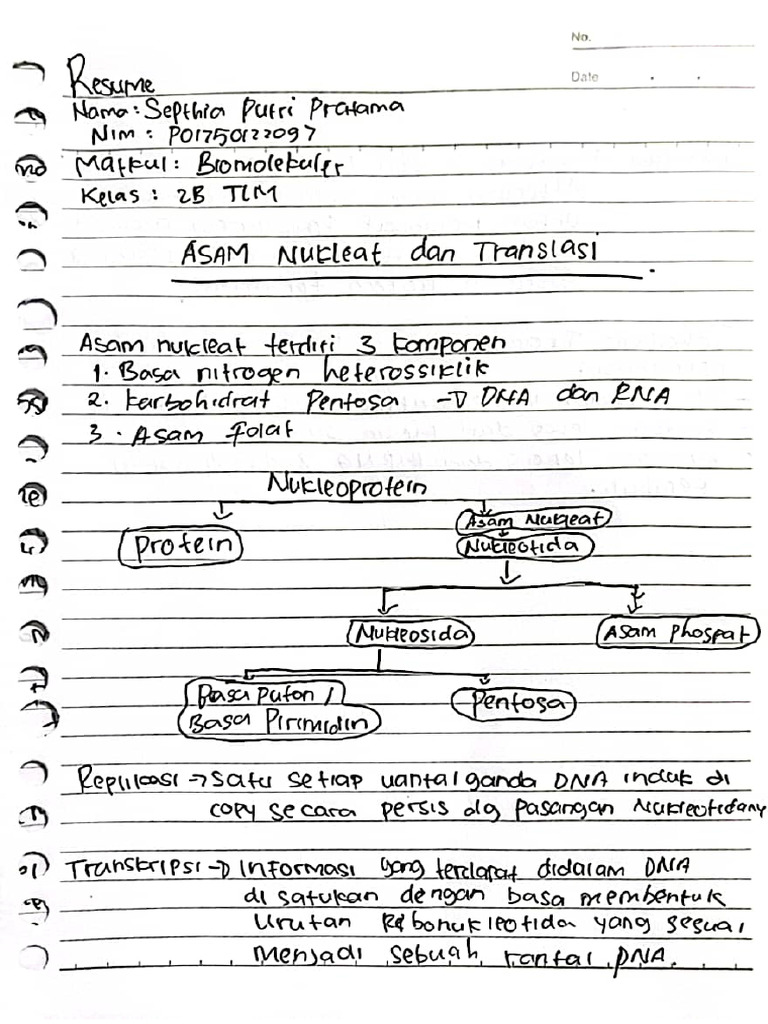 No.
Date
Resume
Nama : Septhia Putri Pratama
Nim : P01750122097
Matkul : Biomolekuler
Kelas : 2B TLM
ASAM Nukleat dan Translasi
Asam nukleat terdiri 3 komponen
1. Basa nitrogen heterossiklik
2. Karbohidrat Pentosa → DNA dan RNA
3. Asam folat
Nukleoprotein
Protein
Asam Nukleat
Nukleotida
Nukleosida
Asam phospat
Basa Puron /
Basa Pirimidin
Pentosa
Replikasi → satu setiap uantai ganda DNA induk di
copy secara persis dlg pasangan Nukleotidany
Transkripsi → Informasi yang terdapat didalam DNA
di satukan dengan basa membentuk
Urutan Ribonukleotida yang sesuai
Menjadi sebuah rantai DNA.